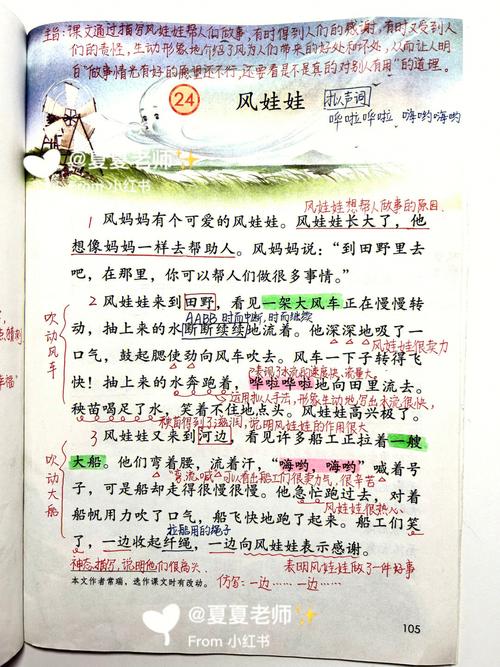 主旨：课文通过描写风娃娃帮人们做事，有时得到人们的感谢，有时又受到人
们的责怪，生动形象地介绍了风为人们带来的好处和坏处，从而让人明
白"做事情光有好的愿望还不行，还要看是不是真的对别人有用"的道理。
24 风娃娃
拟声词
哗啦哗啦 嗨哟嗨哟
@夏夏老师
From 小红书
风娃娃想帮人做事的原因
1 风妈妈有个可爱的风娃娃。风娃娃长大了，他
想像妈妈一样去帮助人。风妈妈说：“到田野里去
吧，在那里，你可以帮人们做很多事情。”
2 风娃娃来到田野，看见一架大风车正在慢慢转
AABB 时而中断，时而继续
动，抽上来的水断断续续地流着。他深深地吸了一
口气，鼓起腮使劲向风车吹去。风车一下子转得飞
风娃娃很卖力
表现了水流的速度快，流量大
快！抽上来的水奔跑着，哗啦哗啦地向田里流去。
运用拟人手法，形象生动地写出水流很快，
秧苗喝足了水，笑着不住地点头。风娃娃高兴极了。
秧苗得到了滋润，说明风娃娃的作用很大
吹动风车
3 风娃娃又来到河边，看见许多船工正拉着一艘
大船。他们弯着腰，流着汗，“嗨哟，嗨哟”喊着号
"弯、流、喊"可以看出船工们很卖力气，很辛苦
子，可是船却走得很慢很慢。他急忙跑过去，对着
风娃娃很热心
船帆用力吹了口气，船飞快地跑了起来。船工们笑
拉船用的绳子
了，一边收起纤绳，一边向风娃娃表示感谢。
吹动大船
神态描写，说明他们很高兴
表明风娃娃做了一件好事
本文作者常瑞，选作课文时有改动。
仿写：一边……一边……
@夏夏老师
From 小红书
105